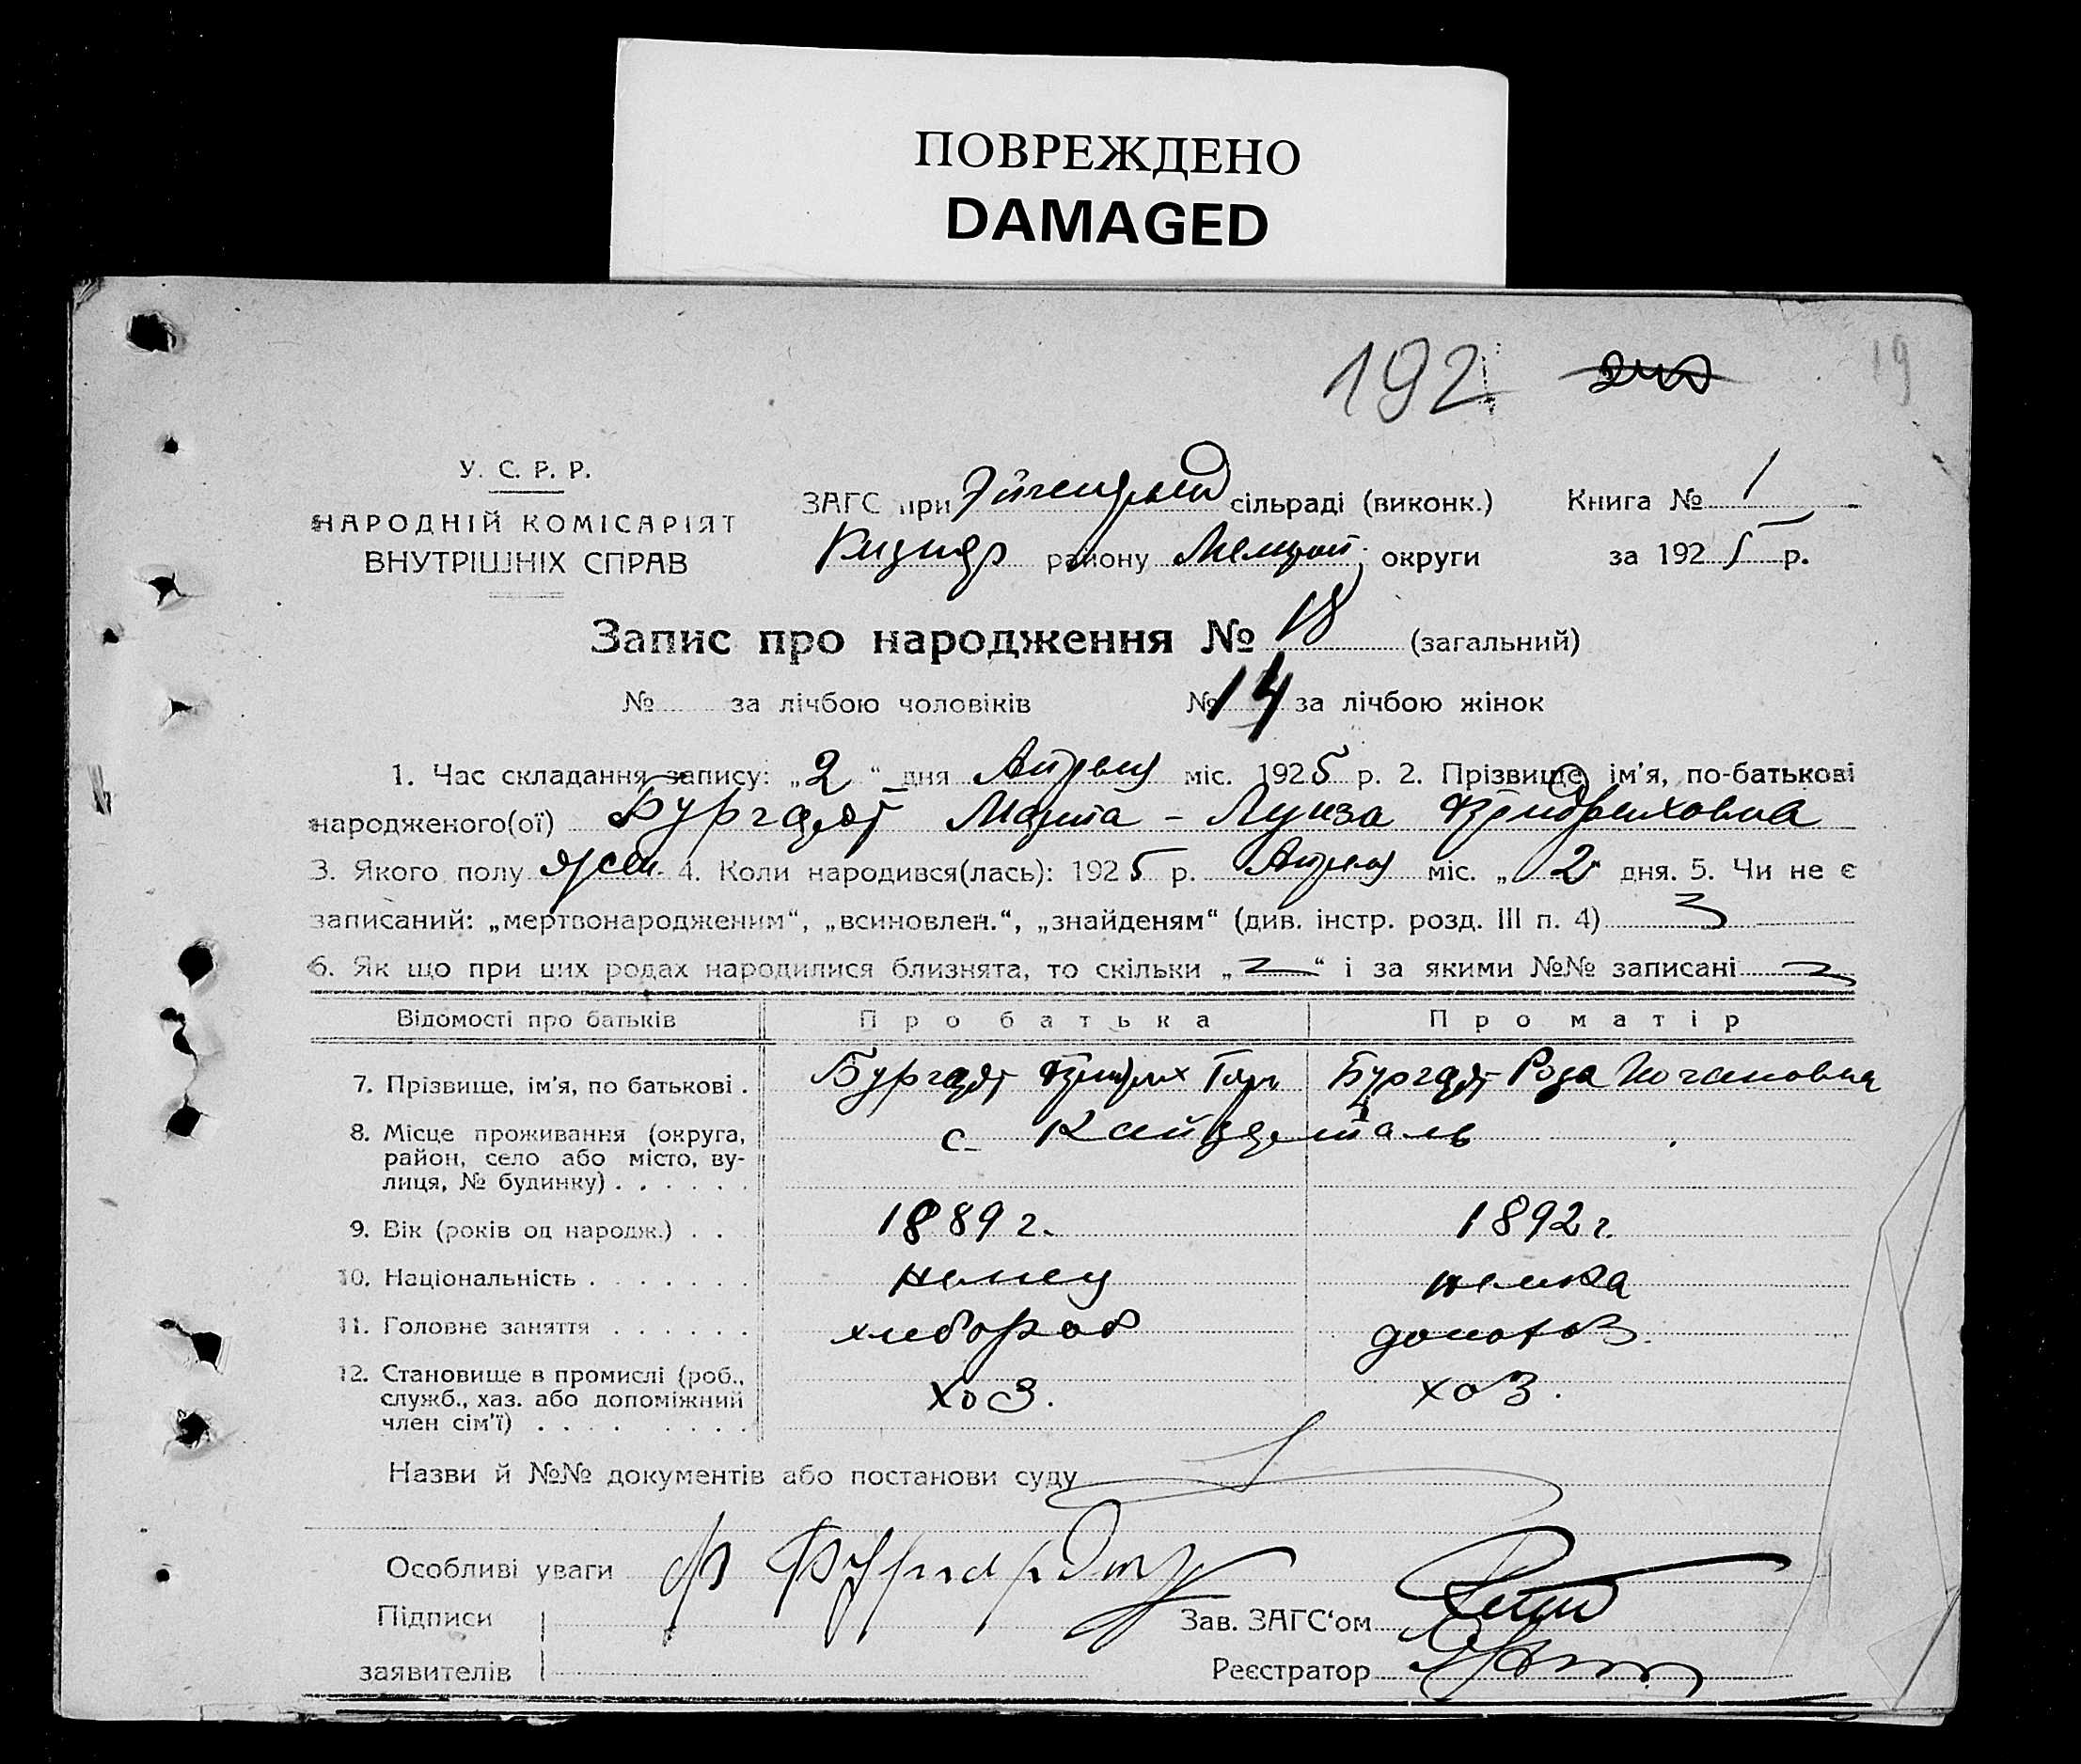 ПОВРЕЖДЕНО
DAMAGED
192
19
У. С. Р. Р.
НАРОДНІЙ КОМІСАРІЯТ
ВНУТРІШНІХ СПРАВ
ЗАГС при сільраді (виконк.)
району округи
Книга № 1
за 1925 р.
Запис про народження № 18 (загальний)
№ за лічбою чоловіків № 14 за лічбою жінок
1. Час складання запису: „2“ дня Апреля міс. 1925 р. 2. Прізвище, ім'я, по-батькові
народженого(ої) Бургардт Марта - Луиза Фридриховна
3. Якого полу жен. 4. Коли народився(лась): 1925 р. Апреля міс. „2“ дня. 5. Чи не є
записаний: „мертвонародженим“, „всиновлен.“, „знайденям“ (див. інстр. розд. III п. 4)
6. Як що при цих родах народилися близнята, то скільки „ “ і за якими №№ записані
Відомості про батьків Про батька Про матір
7. Прізвище, ім'я, по батькові . Бургардт Фридрих Бургардт Роза Иогановна
8. Місце проживання (округа, с. Кайзерталь
район, село або місто, ву-
лиця, № будинку) . . . . . .
9. Вік (років од народж.) . . 1889 г. 1892 г.
10. Національність . . . . . . . немец немка
11. Головне заняття . . . . . . хлебороб домохоз.
12. Становище в промислі (роб.,
служб., хаз. або допоміжний хоз. хоз.
член сім'ї) . . . . . . . .
Назви й №№ документів або постанови суду
Особливі уваги
Підписи
заявителів
Зав. ЗАГС'ом
Реєстратор